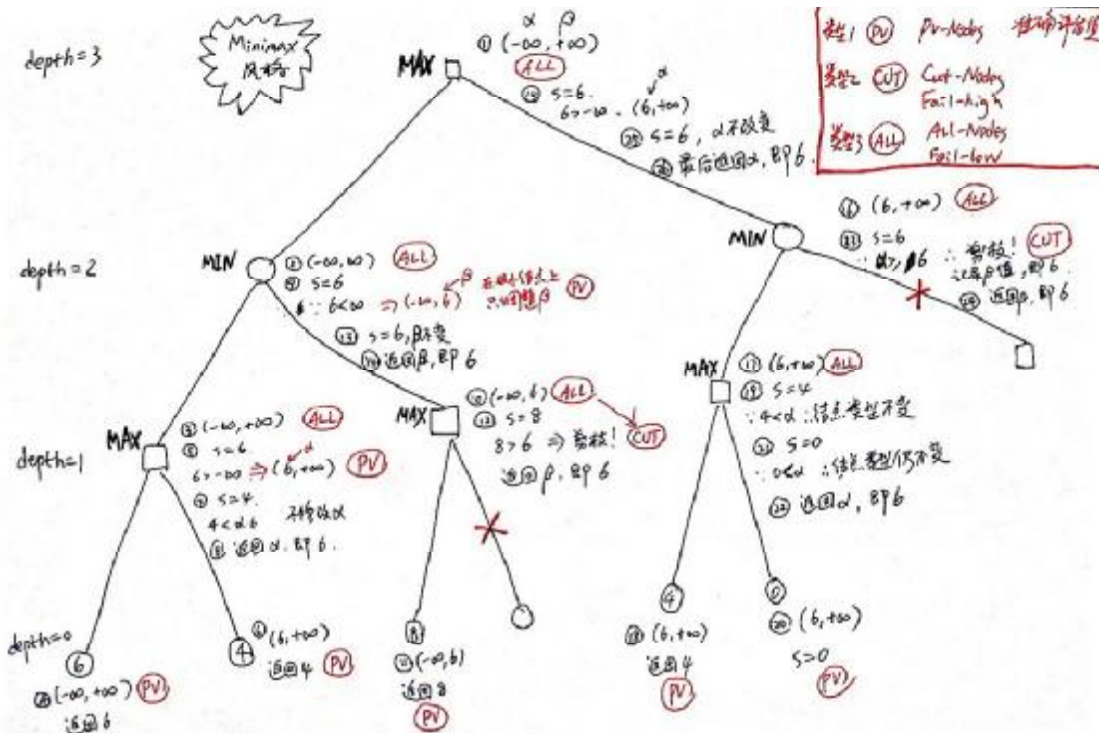 depth=3
Minimax
风格
MAX
α β
① (-∞, +∞)
ALL
s=6.
6>-∞ → (6,+∞)
α
㉕ s=6, α不改变
㉖ 最后返回α, 即6.
类型1 PV PV-Nodes 准确评估值
类型2 CUT Cut-Nodes
Fail-high
类型3 ALL All-Nodes
Fail-low
depth=2
MIN
② (-∞,∞) ALL
⑨ s=6
∵ 6<∞ ⇒ (-∞, 6)
β
PV
⑬ s=6, β不变
⑭ 返回β, 即6
MIN
(6,+∞) ALL
㉓ s=6
∴ 剪枝! CUT
β值, 即6.
㉔ 返回β, 即6
depth=1
MAX
③ (-∞, +∞) ALL
⑤ s=6.
6>-∞ ⇒ (6,+∞) PV
α
⑦ s=4.
4<α6 不修改α
⑧ 返回α, 即6.
MAX
⑩ (-∞, 6) ALL
⑫ s=8
8>6 ⇒ 剪枝! CUT
返回β, 即6
MAX
⑰ (6,+∞) ALL
⑲ s=4
∵4<α ∴结点类型不变
㉑ s=0
∵0<α ∴结点类型仍不变
㉒ 返回α, 即6
depth=0
6
(-∞, +∞) PV
返回6
4
⑥ (6,+∞)
返回4 PV
8
⑪ (-∞, 6)
返回8
PV
4
⑱ (6,+∞)
返回4
PV
0
⑳ (6,+∞)
s=0
PV